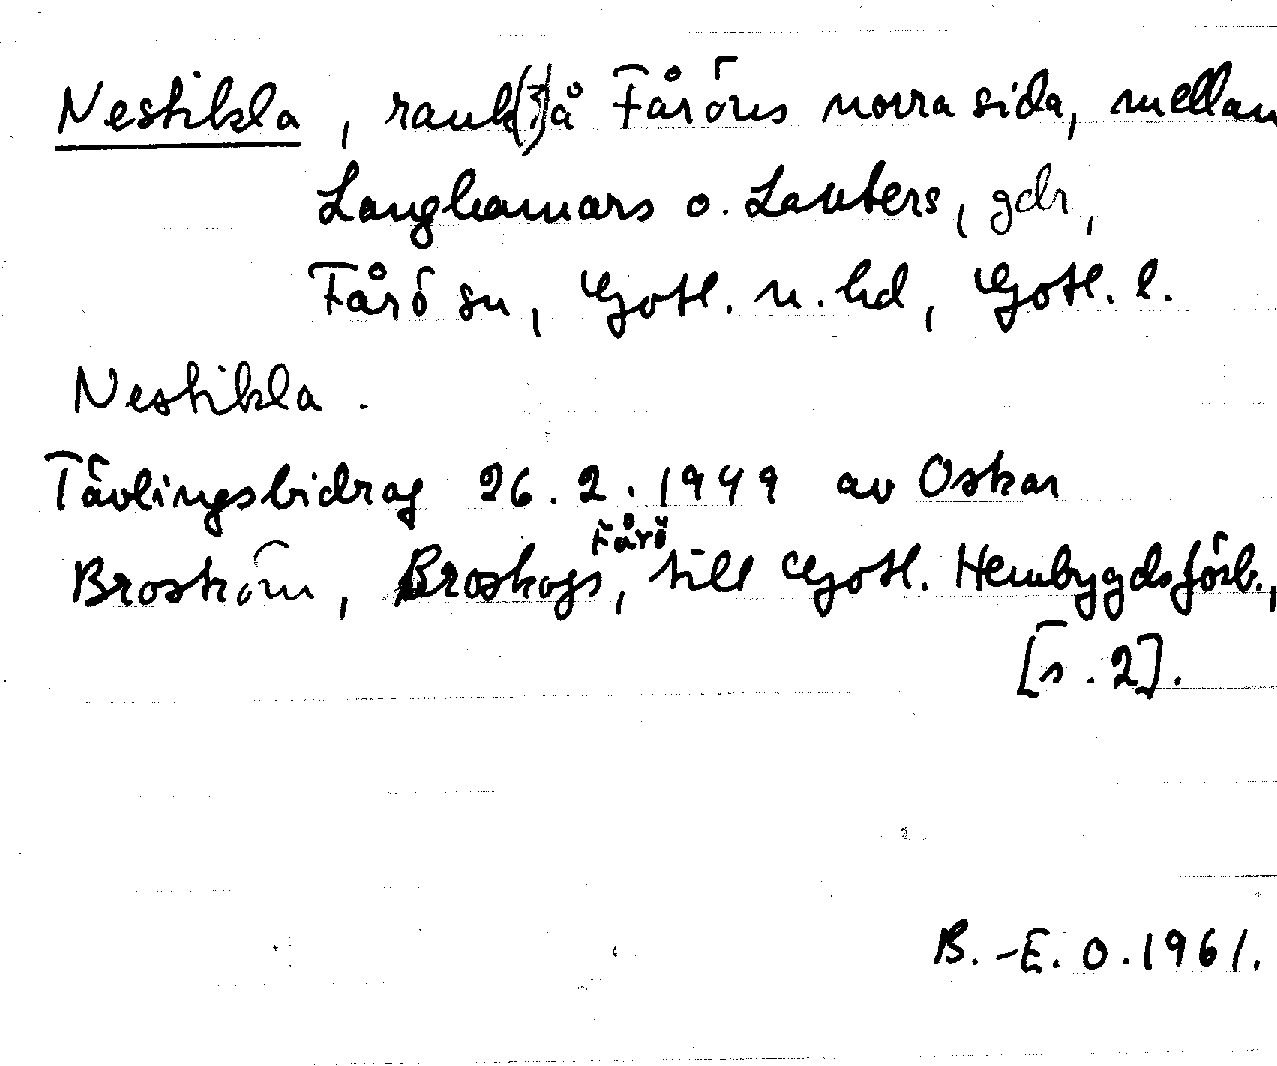 Nestikla, rauk(?) å Fåröns norra sida, mellan
Langhamars o. Lauters, gdr,
Fårö sn, Gotl. n. hd, Gotl. l.
Nestikla.
Tävlingsbidrag 26.2.1949 av Oskar
Broström, Broskogs, Fårö, till Gotl. Hembygdsförb.,
[s. 2].
B.-E. O. 1961.